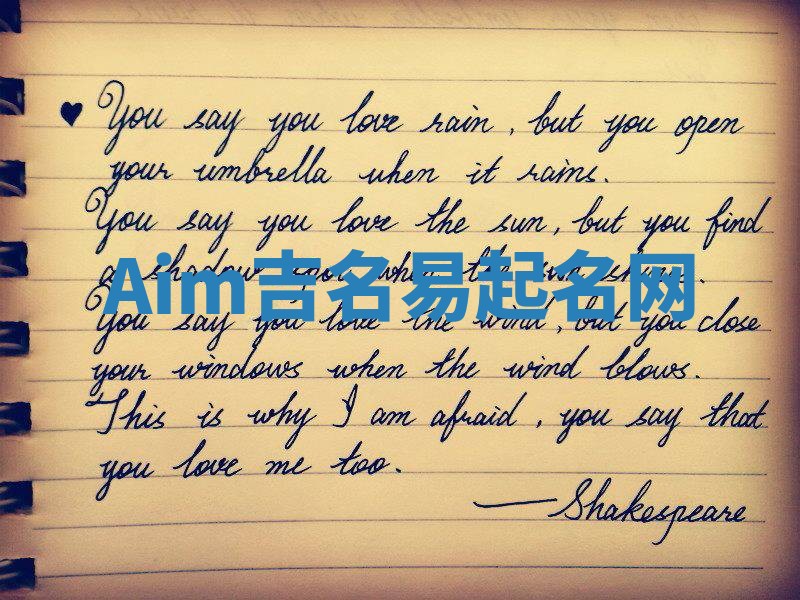 ♥ You say you love rain, but you open
your umbrella when it rains.
You say you love the sun, but you find
a shadow spot when the sun shines.
Aim吉名易起名网
You say you love the wind, but you close
your windows when the wind blows.
This is why I am afraid, you say that
you love me too.
—Shakespeare